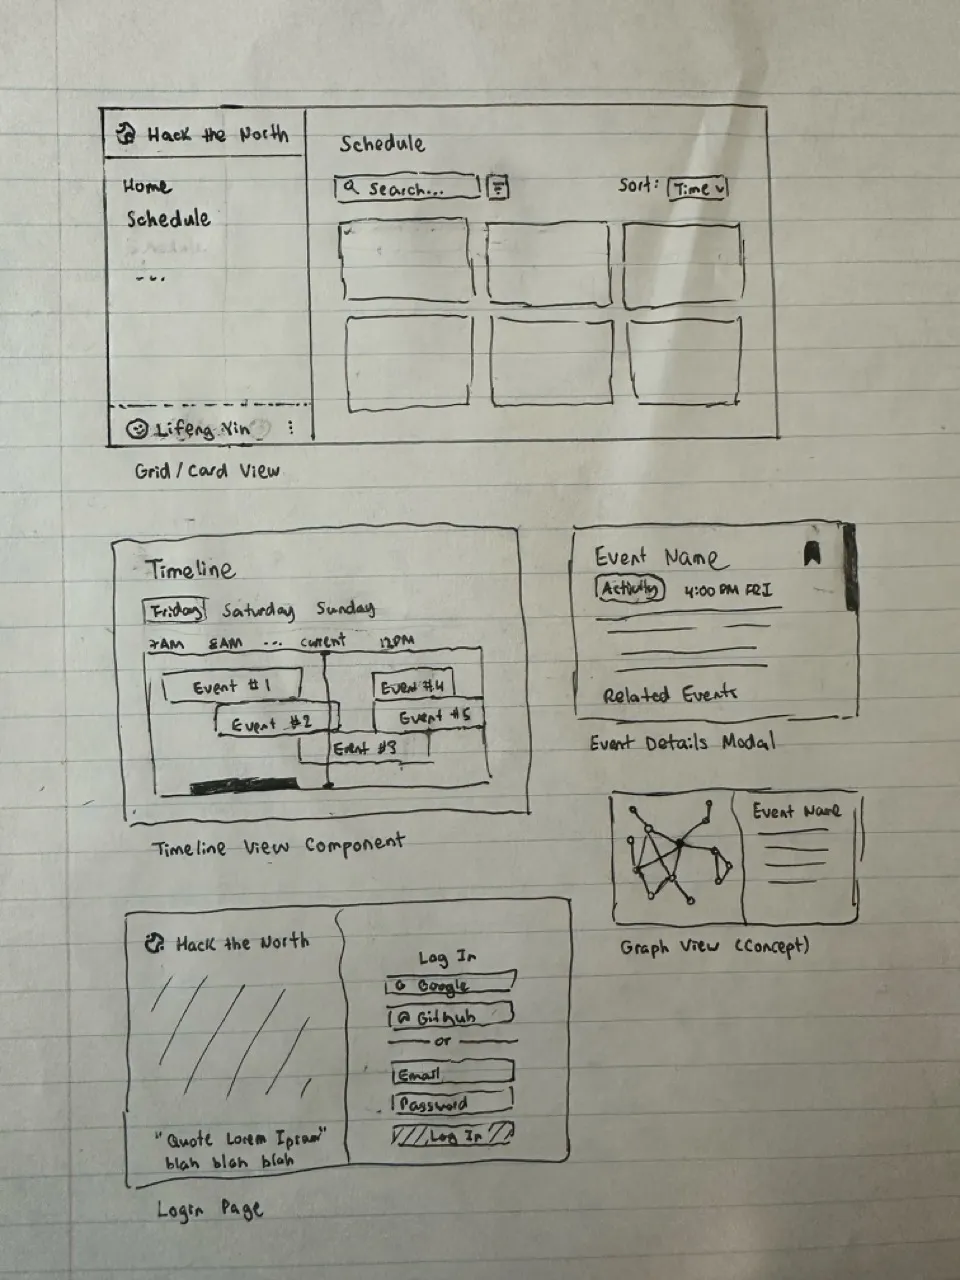 Hack the North
Home
Schedule
...
Lifeng Yin
Schedule
Search...
Sort: Time
Grid / Card View
Timeline
Friday Saturday Sunday
7AM 8AM ... current 12PM
Event #1
Event #4
Event #2
Event #5
Event #3
Timeline View Component
Event Name
Activity 4:00 PM FRI
Related Events
Event Details Modal
Event Name
Graph View (Concept)
Hack the North
"Quote Lorem Ipsum"
blah blah blah
Log In
G Google
Github
or
Email
Password
Log In
Login Page